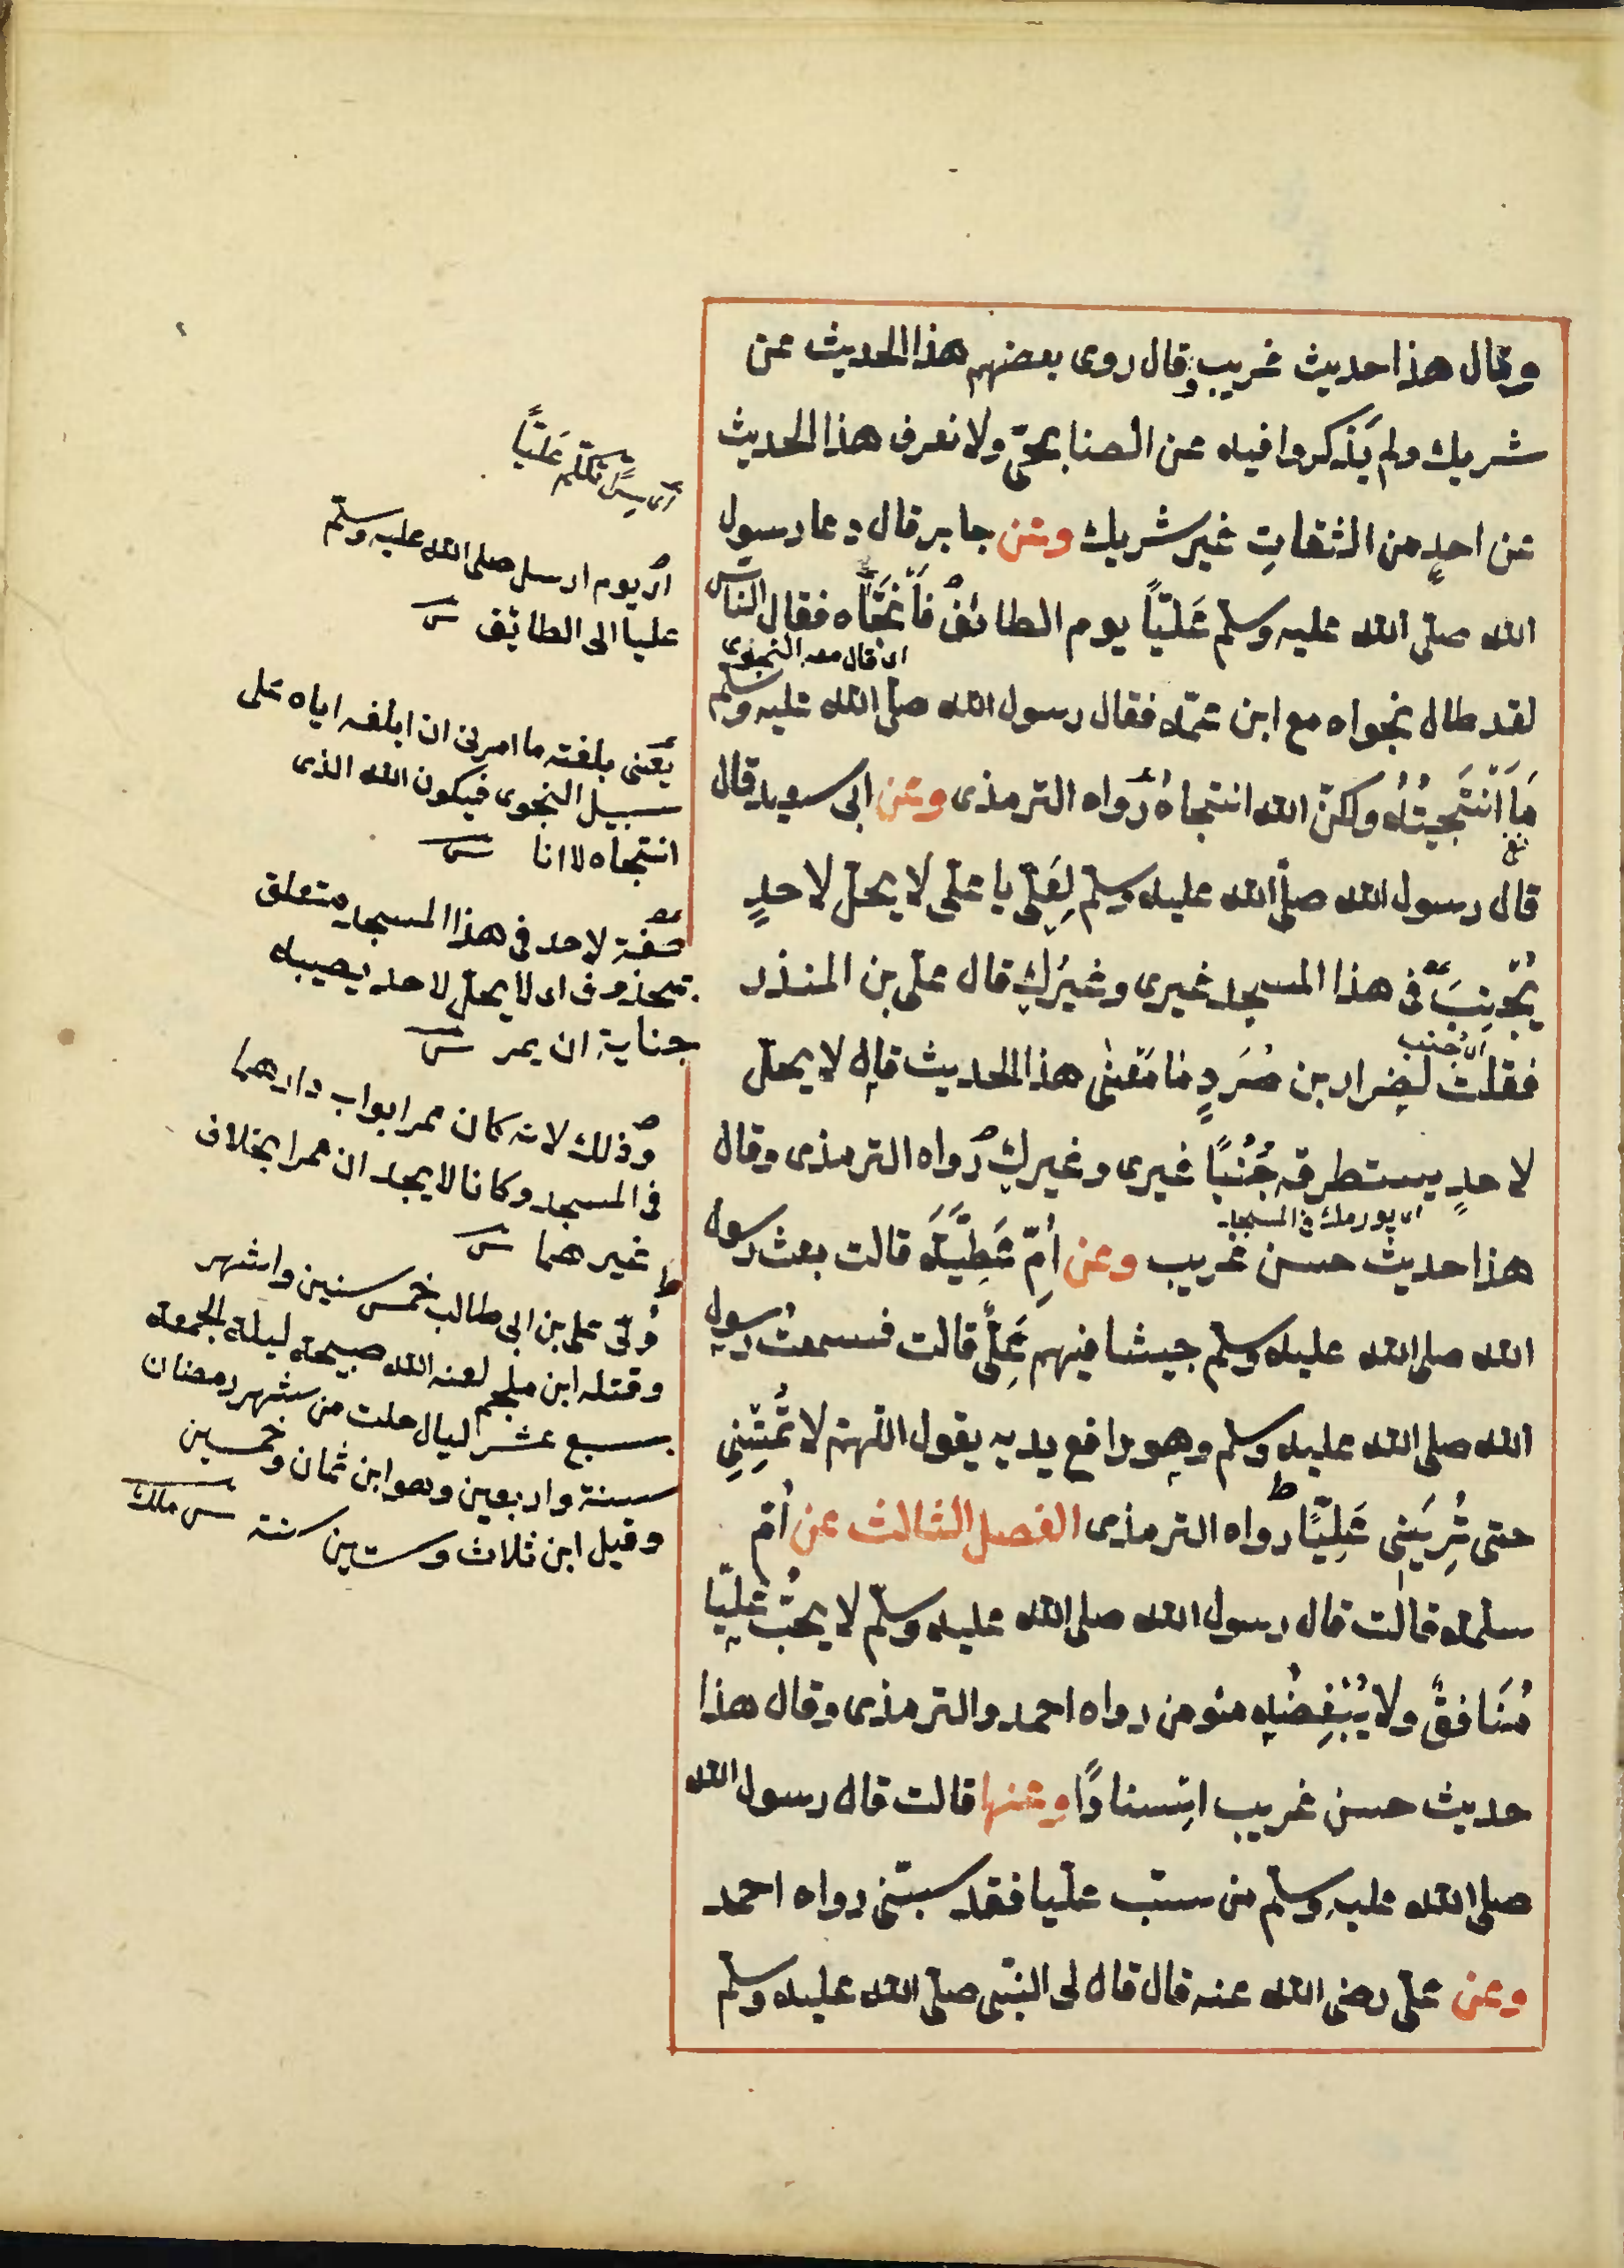 وقال هذا حديث غريب وقال روى بعضهم هذا الحديث عن
شريك ولم يَذكروا فيه عن الصنابحيّ ولا نعرف هذا الحديث
عن احدٍ من الثقاتِ غير شريك وعن جابر قال دعا رسول
الله صلى الله عليه وسلم عَليّاً يوم الطائف فَانْتَجَاه فقال الناس
اى قال معه النجوى
لقد طال نجواه مع ابن عمّه فقال رسول الله صلى الله عليه وسلم
مَا اَنْتَجَيتُهُ ولكنّ الله انتجاهُ رواه الترمذى وعن ابى سعيد قال
قال رسول الله صلى الله عليه وسلم لِعَلىّ يا على لا يحلّ لاحدٍ
يُجْنِبَ فى هذا المسجد غيرى وغيرُكِ قال علىّ بن المنذر
اى جنب
فقلت لِضرار بن صُرَدٍ مَا مَعْنٰى هذا الحديث قال لا يحلّ
لاحدٍ يستطرقه جُنُبًا غيرى وغيرك رواه الترمذى وقال
هذا حديث حسن غريب وعن اُمِّ عَطِيَّةَ قالت بعث رسول
الله صلى الله عليه وسلم جيشا فيهم عَلِىٌّ قالت فسمعت رسول
الله صلى الله عليه وسلم وهو رافع يديه يقول اللّهمّ لا تُمِتْنِي
حتى تُرِيَنِى عَلِيّاً رواه الترمذى الفصل الثالث عن اُمّ
سلمة قالت قال رسول الله صلى الله عليه وسلم لا يحبُّ عَلِيّا
مُنَافقٌ ولا يُبْغِضُه مؤمن رواه احمد والترمذى وقال هذا
حديث حسن غريب اِسنادًا وعنها قالت قال رسول الله
صلى الله عليه وسلم من سبّ عليّا فقد سبّنى رواه احمد
وعن علىّ رضى الله عنه قال قال لى النبّى صلى الله عليه وسلم
تكلّم عَليّاً
اى يوم ارسل صلى الله عليه وسلم
عليا الى الطائف
يعنى بلغته ما امرنى ان ابلغه اياه على
سبيل النجوى فيكون الله الذى
انتجاه لا انا
صفة لاحد فى هذا المسجد متعلق
بمحذوف اى لا يحلّ لاحد يصيبه
جناية ان يمر
وذلك لانه كان ممر ابواب دارهما
فى المسجد وكانا لا يجدان ممرا بخلاف
غيرهما
وُلّى على بن ابى طالب خمس سنين واشهر
وقتله ابن ملجم لعنه الله صبيحة ليلة الجمعة
بسبع عشر ليال خلت من شهر رمضان
سنة واربعين وهو ابن ثمان وخمسين
وقيل ابن ثلاث وستين سنة